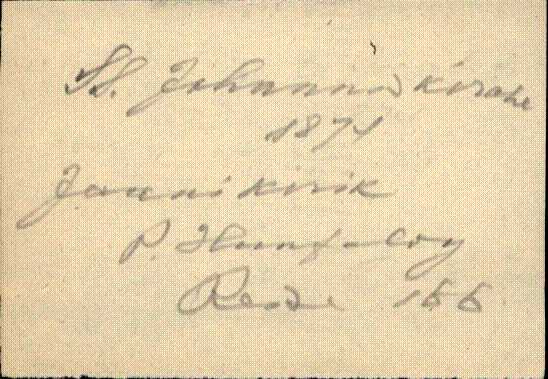 St. Johannis kirche
1871
Jaani kirik
P. Hunfalvy
Reise 166